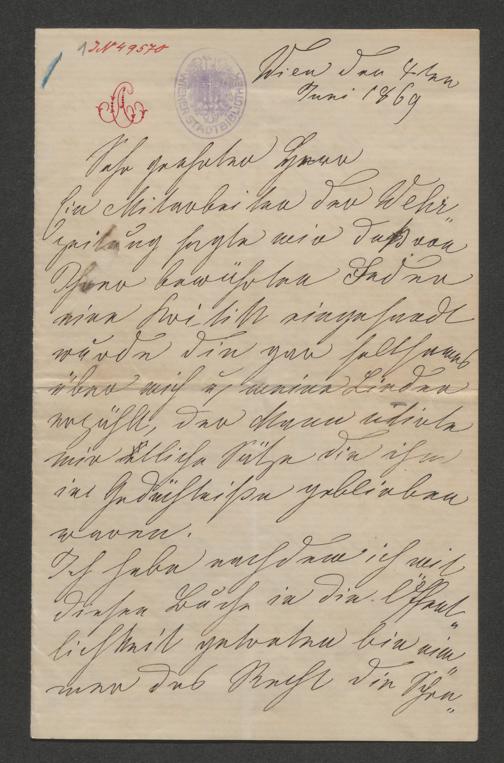 1 JN 49570
WIENER STADTBIBLIOTHEK
Wien den 4ten
Juni 1869
Sehr geehrter Herr
Ein Mitarbeiter der Wehr-
zeitung sagte mir daß von
Ihrer bewährten Feder
eine Kritik eingesandt
wurde die gar seltsames
über mich u meine Lieder
erzählt, der Mann citirte
mir etliche Sätze die ihm
im Gedächtniße geblieben
waren.
Ich habe nachdem ich mit
diesem Buche in die Öffent-
lichkeit getreten bin
das Recht die